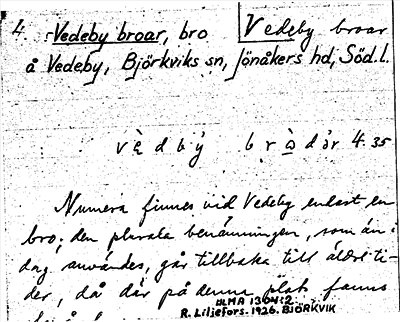 4. Vedeby broar, bro Vedeby broar
å Vedeby, Björkviks sn, Jönåkers hd, Söd.l.
4.35
Numera finnes vid Vedeby endast en
bro; den plurala benämningen, som än i
dag användes, går tillbaka till äldre ti-
der, då där på denna plats fanns
ULMA 1304:2
R. Liljefors. 1926. BJÖRKVIK